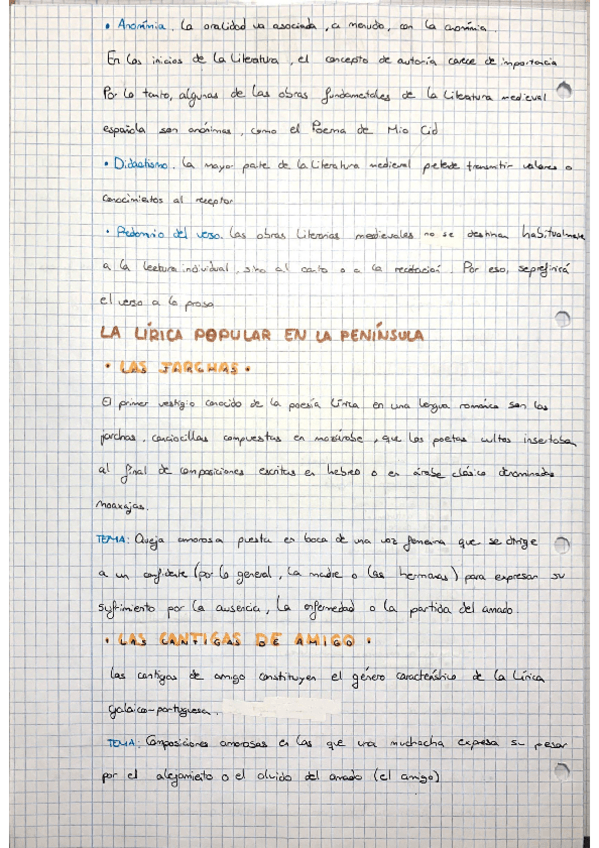 • Anonimia. La oralidad va asociada, a menudo, con la anonimia.
En los inicios de la literatura, el concepto de autoría carece de importancia
Por lo tanto, algunas de las obras fundamentales de la literatura medieval
española son anónimas, como el Poema de Mio Cid
• Didactismo. La mayor parte de la literatura medieval pretende transmitir valores o
conocimientos al receptor
• Predominio del verso. Las obras literarias medievales no se destinan habitualmente
a la lectura individual, sino al canto o a la recitación. Por eso, se preferirá
el verso a la prosa
LA LÍRICA POPULAR EN LA PENÍNSULA
• LAS JARCHAS •
El primer vestigio conocido de la poesía lírica en una lengua románica son las
jarchas, cancioncillas compuestas en mozárabe, que los poetas cultos insertaban
al final de composiciones escritas en hebreo o en árabe clásico denominadas
moaxajas.
TEMA: Queja amorosa puesta en boca de una voz femenina que se dirige
a un confidente (por lo general, la madre o las hermanas) para expresar su
sufrimiento por la ausencia, la enfermedad o la partida del amado.
• LAS CANTIGAS DE AMIGO •
Las cantigas de amigo constituyen el género característico de la lírica
galaico-portuguesa.
TEMA: Composiciones amorosas en las que una muchacha expresa su pesar
por el alejamiento o el olvido del amado (el amigo)